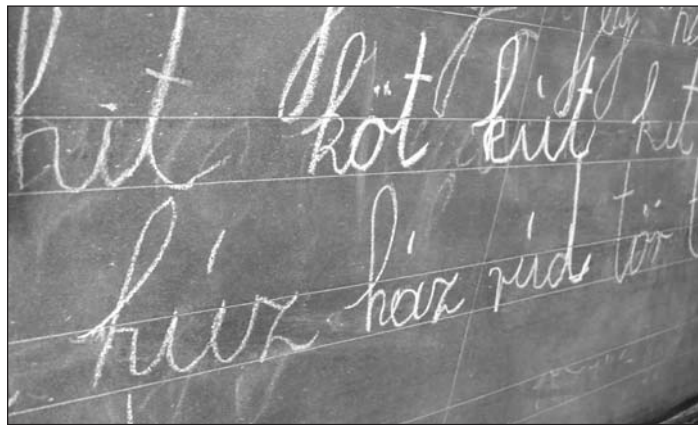 hit köt kút
húz ház rúd tör